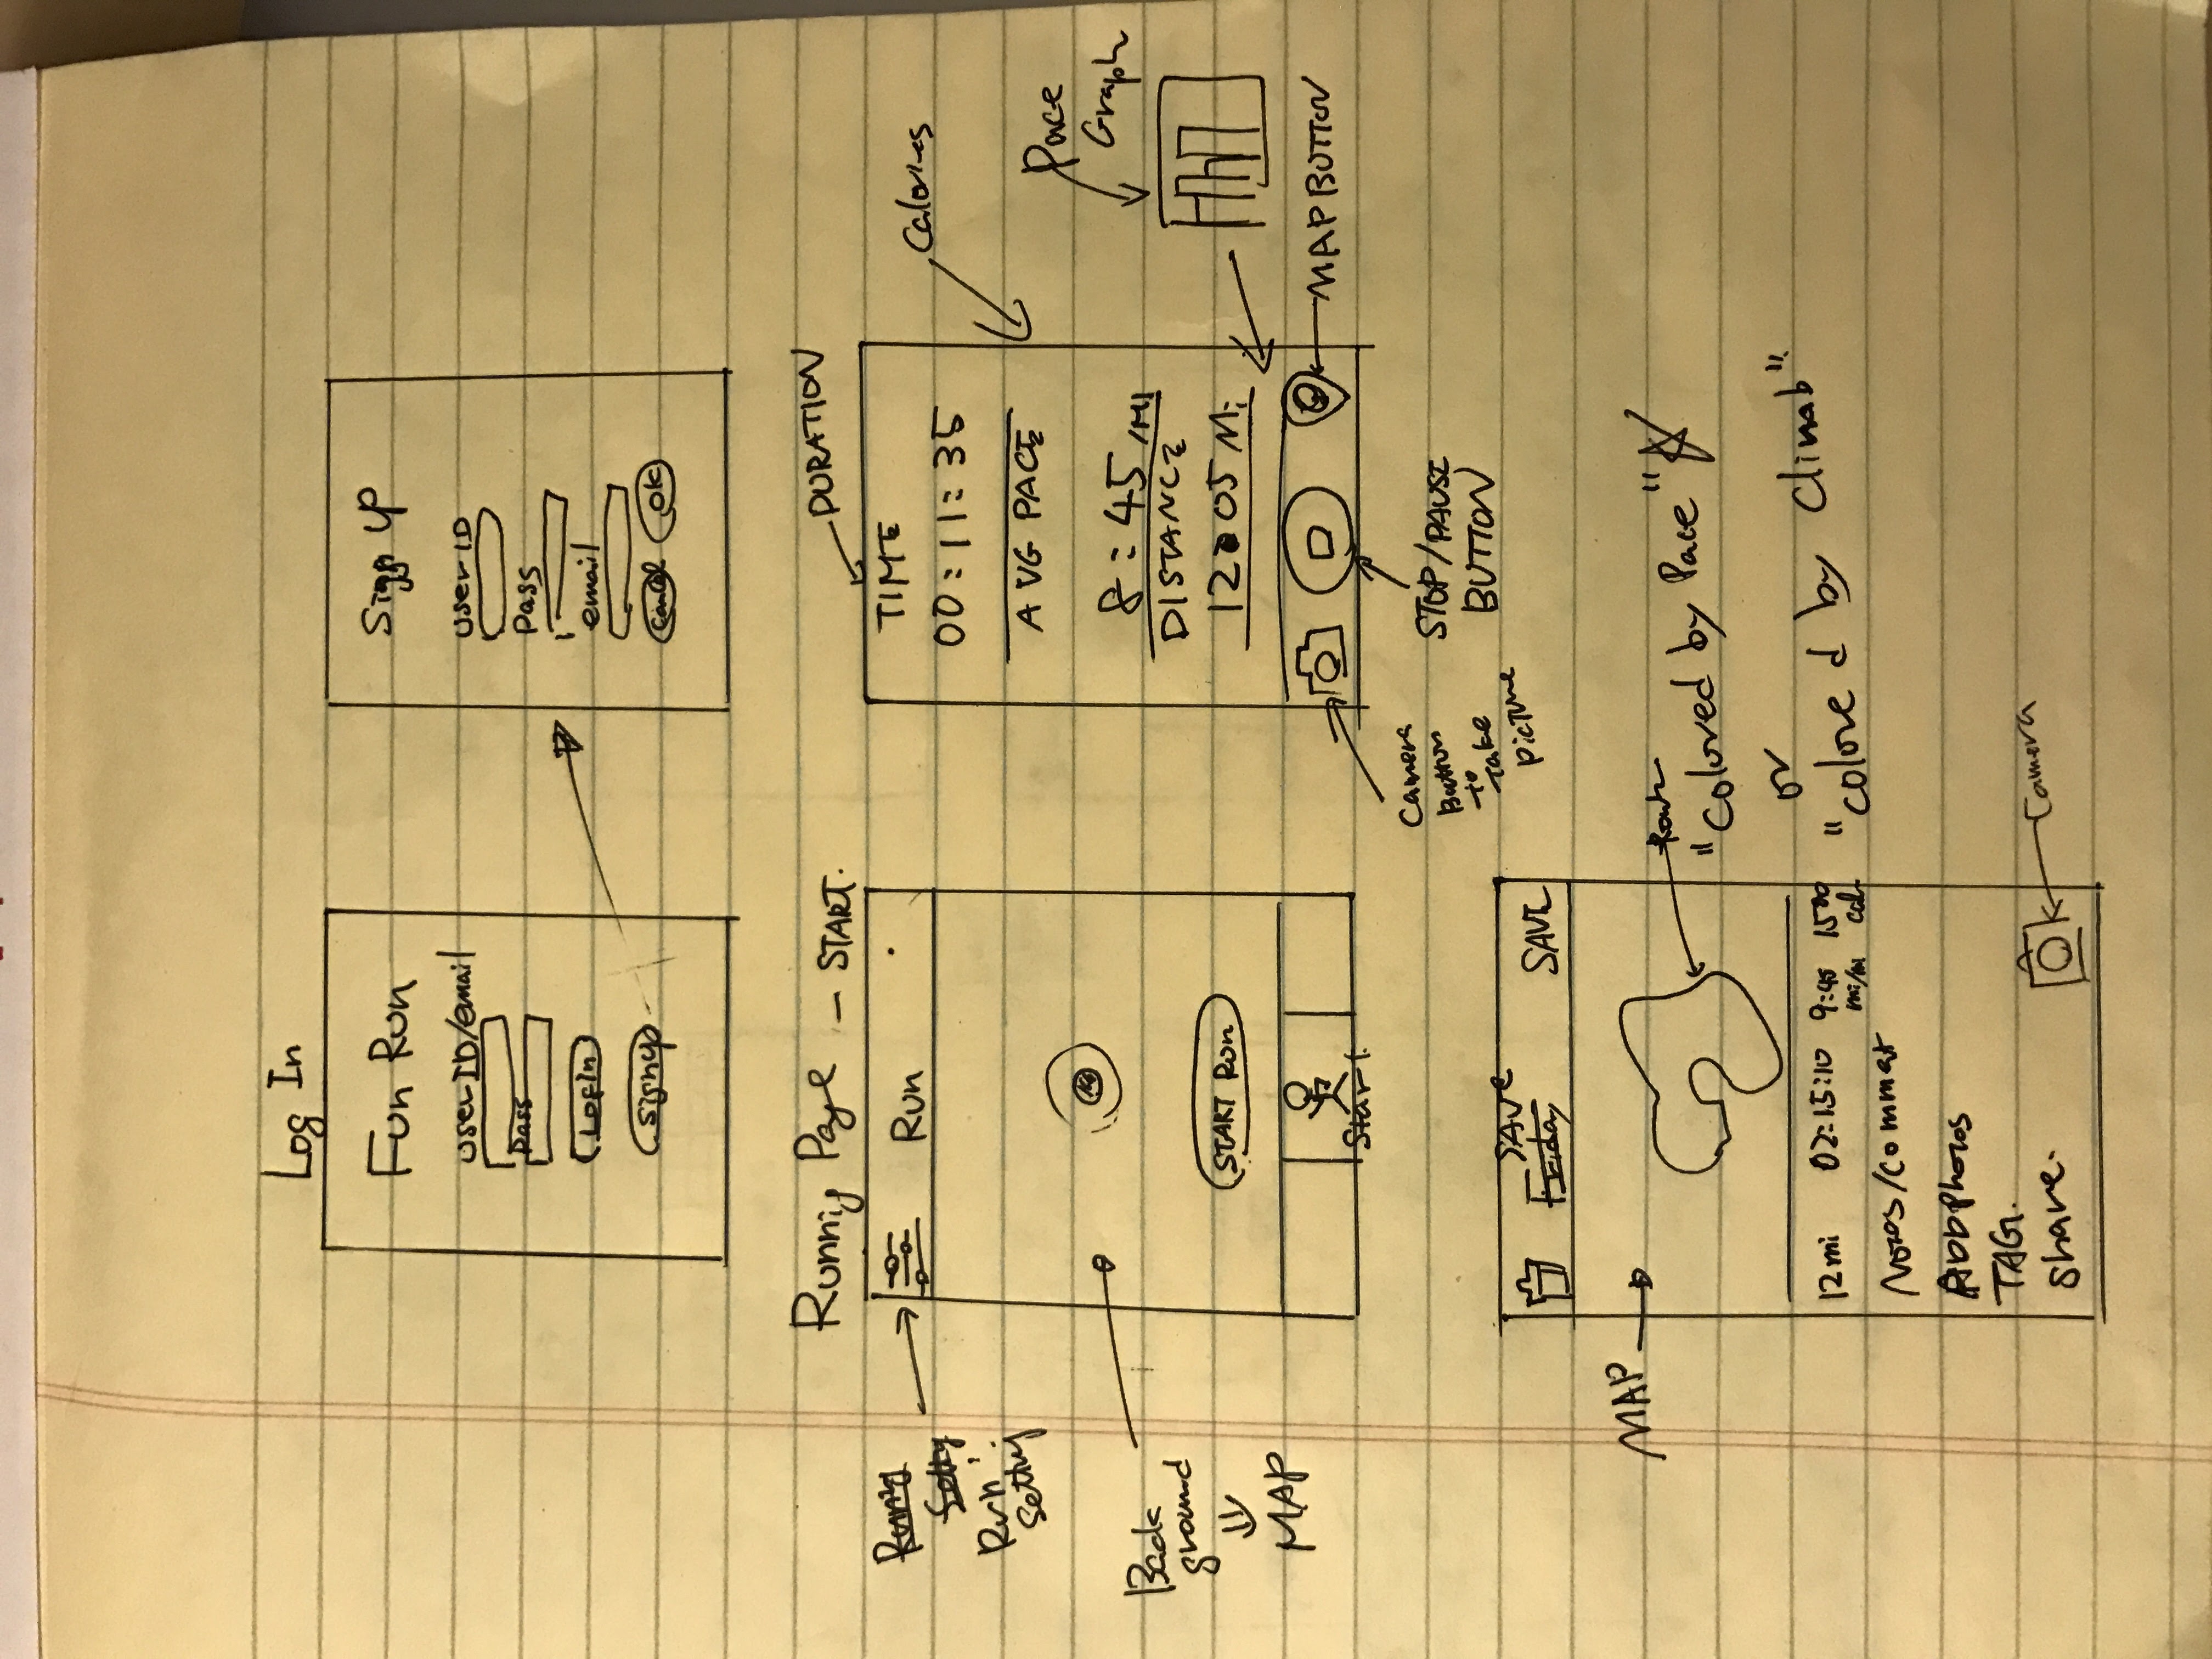 Log In
Fun Run
user ID/email
Pass
Login
Signup
Sign up
user ID
Pass
email
Cancel
OK
Runnig Page - START.
Runnig
Settig
Run
Settig
Run
Back
ground
MAP
START Run
Start
DURATION
TIME
00:11:35
AVG PACE
8:45 /MI
DISTANCE
12.05 Mi
Calories
Pace
Graph
MAP BUTTON
Camera
Button
To
Take
Picture
STOP/PAUSE
BUTTON
SAVE
Friday
SAVE
MAP
Route
"Colored by Pace"
or
"colored by Climab"
12mi
02:15:10
9:45
mi/m
1500
cal
Notes/Commet
ADD Photos
TAG.
Share.
Camera